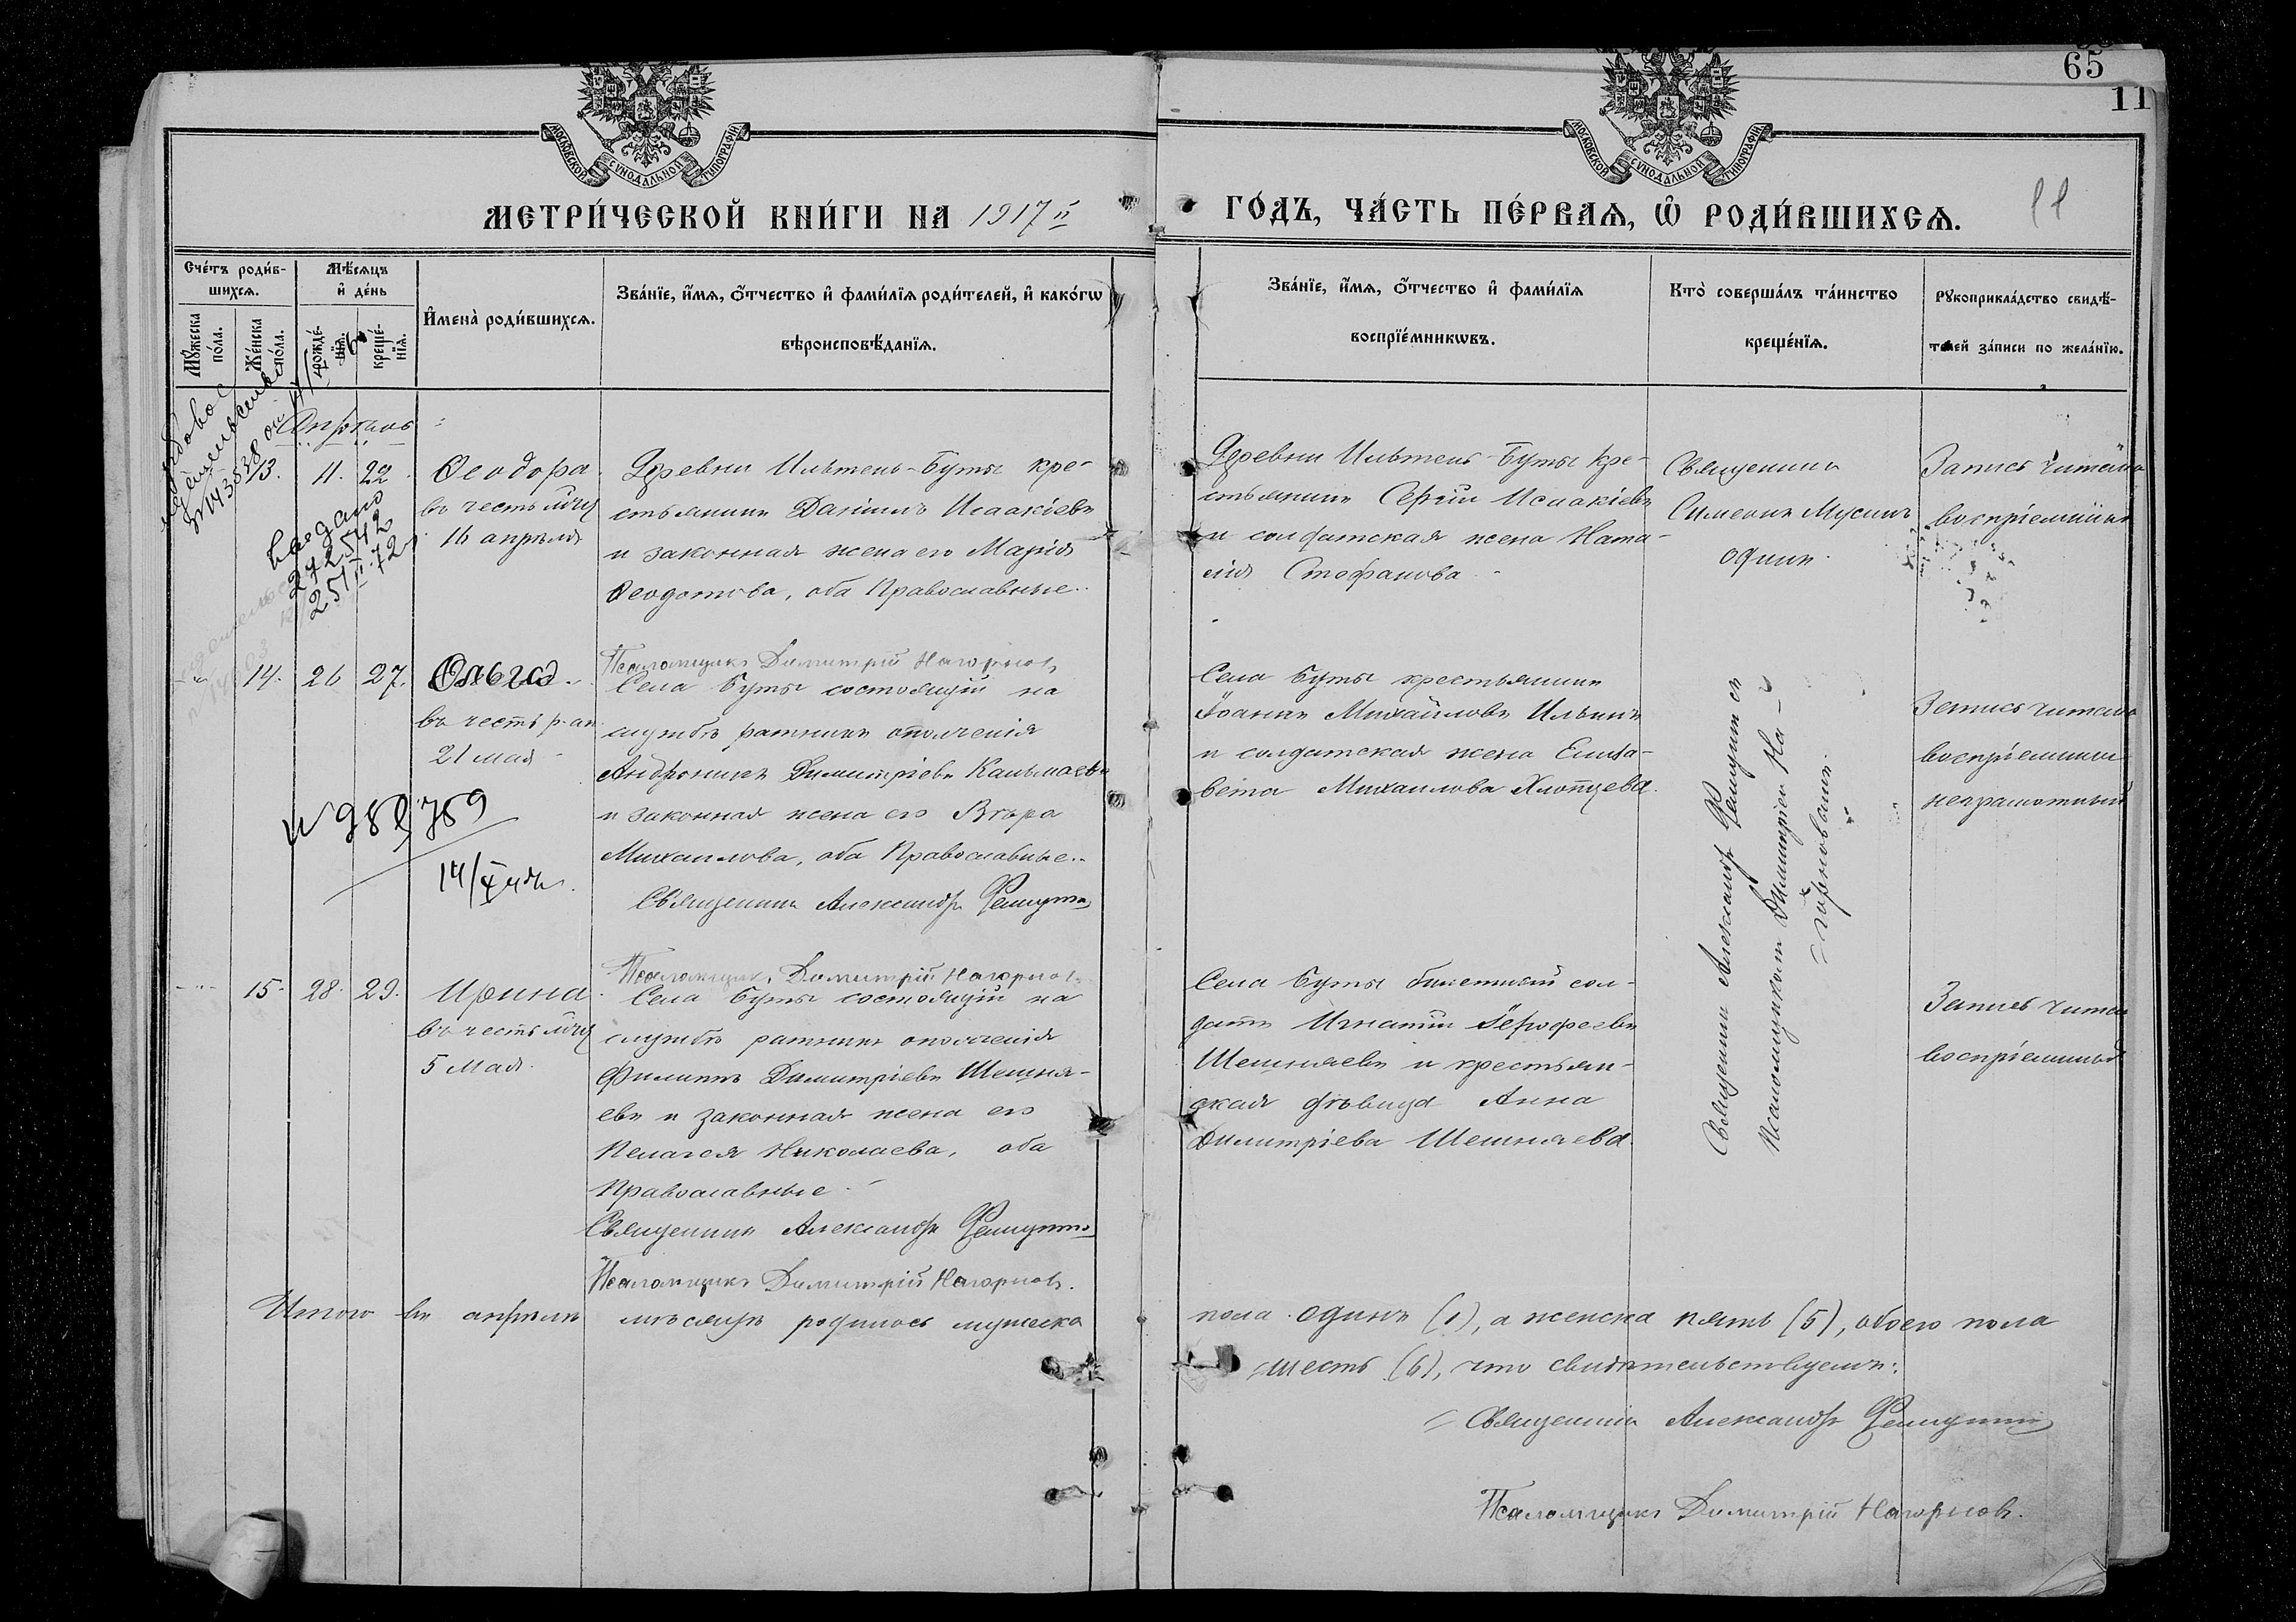 65
11
МОСКОВСКОЙ СѴНОДАЛЬНОЙ ТИПОГРАФІИ
МОСКОВСКОЙ СѴНОДАЛЬНОЙ ТИПОГРАФІИ
МЕТРИ́ЧЕСКОЙ КНИ́ГИ НА 1917й
ГО́ДЪ, ЧА́СТЬ ПЕ́РВАѦ, Ѡ҆ РОДИ́ВШИХСѦ.
11
Сче́тъ роди́в-
шихсѧ.
Мꙋ́жеска
по́ла.
Же́нска
по́ла.
Мѣ́сѧцъ
и҆ де́нь
рожде́-
нїѧ.
креще́-
нїѧ.
И҆мена̀ роди́вшихсѧ.
Зва́нїе, и҆́мѧ, ѻ҆́тчество и҆ фами́лїѧ роди́телей, и҆ како́гѡ
вѣроисповѣ́данїѧ.
Зва́нїе, и҆́мѧ, ѻ҆́тчество и҆ фами́лїѧ
воспрїе́мникѡвъ.
Кто̀ соверша́лъ та́инство
креще́нїѧ.
Рꙋкоприкла́дство свидѣ́-
телей за́писи по жела́нїю.
Апрѣль
13. 11. 22
Ѳеодора
въ честь мчц
16 апрѣля
Деревни Ильтень-Буты кре-
стьянинъ Даніилъ Исаакіевъ
и законная жена его Марія
Ѳеодотова, оба Православные.
Деревни Ильтень-Буты кре-
стьянинъ Сергій Исаакіевъ
и солдатская жена Ната-
лія Стефанова
Священникъ
Симеонъ Мусинъ
одинъ.
Запись читалъ
воспріемникъ
272542
25/II-72
14. 26 27.
Ольга
въ честь р-ап
21 мая
Псаломщикъ Димитрій Нагорновъ
Села Буты состоящій на
службѣ ратникъ ополченія
Андроникъ Димитріевъ Кальмаевъ
и законная жена его Вѣра
Михаилова, оба Православные.
Священникъ Александръ
Села Буты крестьянинъ
Іоаннъ Михайловъ Ильинъ
и солдатская жена Елиза-
вета Михаилова Хлопцева.
Священникъ Александръ
Псаломщикомъ Димитріем На-
горновымъ.
Запись читалъ
воспріемникъ
неграмотный
15. 28. 29.
Ирина
въ честь мчц
5 Мая.
Псаломщикъ Димитрій Нагорновъ
Села Буты состоящій на
службѣ ратникъ ополченія
Филиппъ Димитріевъ Шешня-
евъ и законная жена его
Пелагея Николаева, оба
Православные
Священникъ Александръ
Псаломщикъ Димитрій Нагорновъ.
Села Буты билетный сол-
датъ Игнатій Іерофеевъ
Шешняевъ и крестьян-
ская дѣвица Анна
Димитріева Шешняева.
Запись читалъ
воспріемникъ
Итого въ апрѣлѣ мѣсяцѣ родилось мужеска
пола одинъ (1), а женска пять (5), обоего пола
шесть (6), что свидѣтельствуемъ:
Священникъ Александръ
Псаломщикъ Димитрій Нагорновъ.